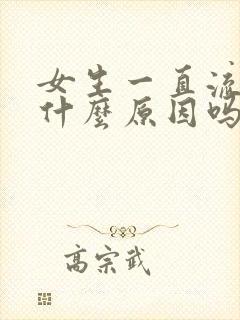 女生一直流
什麼原因吗
高宗武